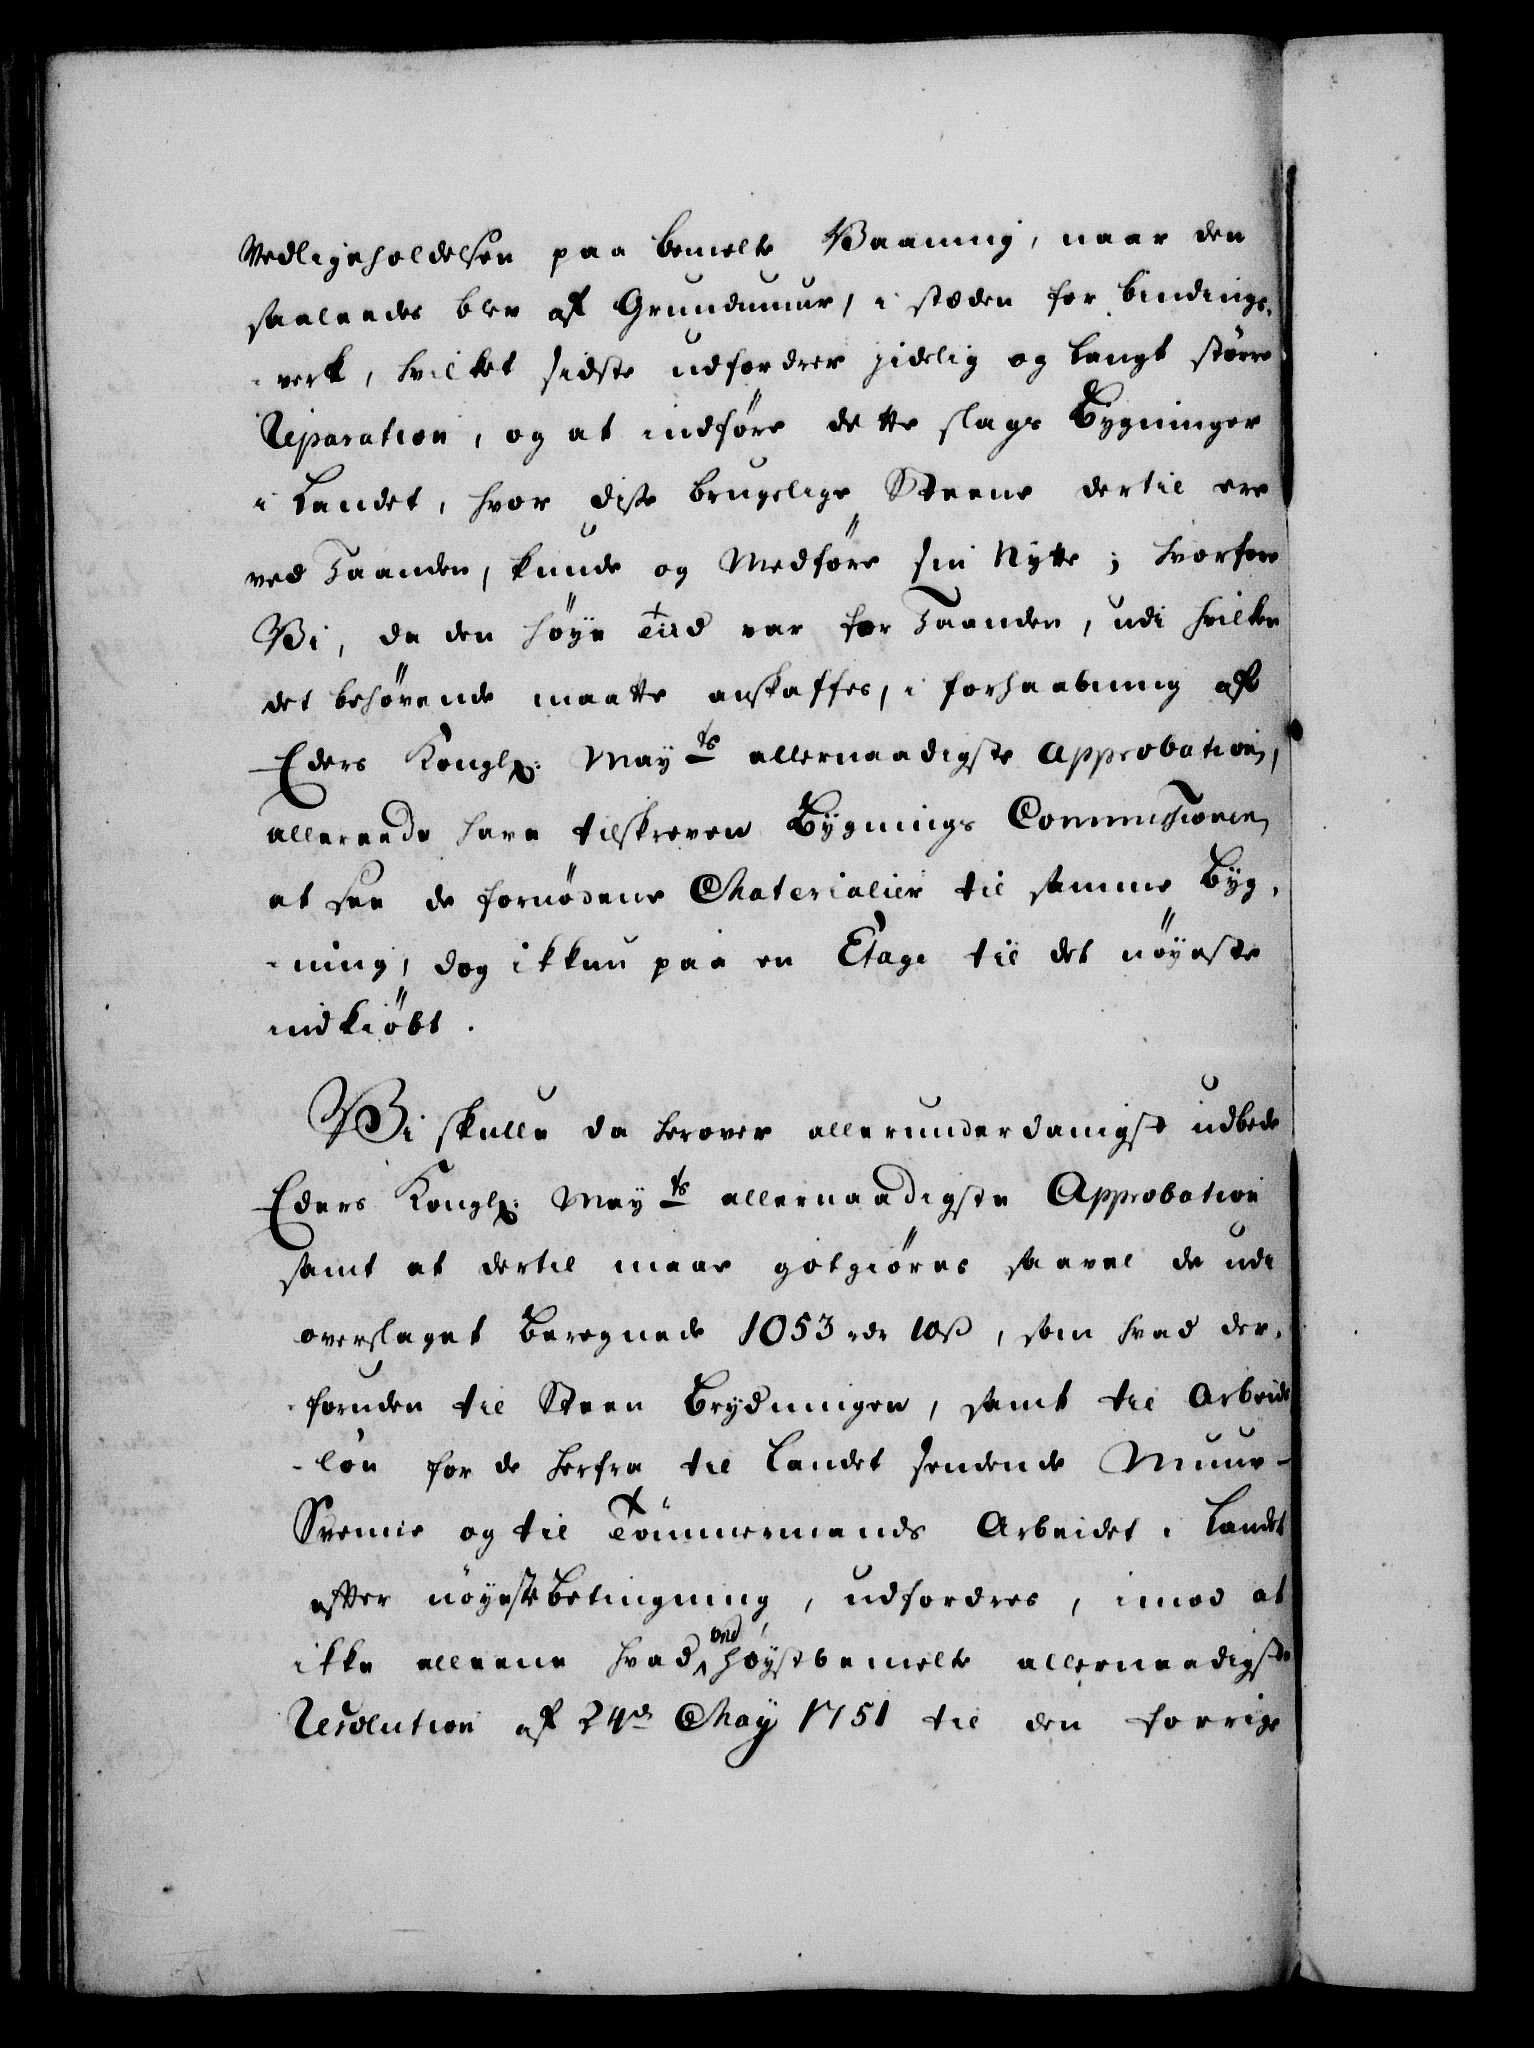 Vedligeholdelsen paa bemelte Vaaning, naar den
saaleedes blev af Grundmuur, i stæden for bindings-
-verk, hvilket sidste udfordrer idelig og langt større
Reparation, og at indføre dette slags Bygninger
i Landet, hvor disse brugelige Steene dertil ere
ved Haanden, kunde og Medføre sin Nytte; hvorfore
Vi, da den høye Tiid var for Haanden, udi hvilken
det behøvende maatte anskaffes, i forhaabning af
Eders Kongl: May:ts allernaadigste Approbation,
allereede have tilskreven Bygnings Commissionen
at see de fornødene Materialier til samme Byg-
-ning, dog ikkun paa en Etage til det nøyeste
indkiøbt.
Vi skulle da herover allerunderdanigst udbede
Eders Kongl: May:ts allernaadigste Approbation
samt at dertil maae gotgiøres saavel de udi
overslaget Beregnede 1053 rdr 10 ß, som hvad der-
-foruden til Steen Brydningen, samt til Arbeids
-løn for de herfra til Landet sendende Muur-
Svenne og til Tømmermands Arbeidet i Landet
efter nøyeste Betingning, udfordres, imod at
ikke alleene hvad ved høystbemelte allernaadigste
Resolution af 24de May 1751 til den forrige